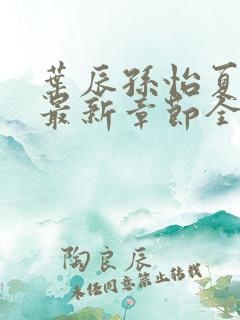 叶辰孙怡夏
最新章节全
陶良辰
未经同意禁止转载